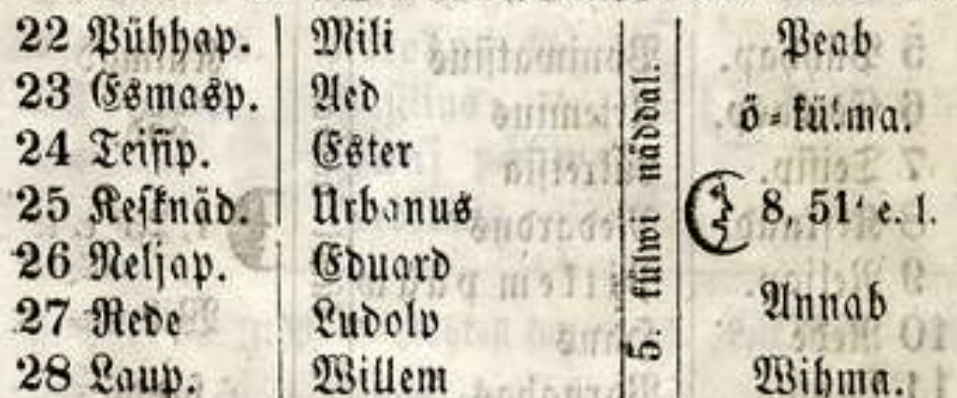 22 Pühhap. Mili Peab
23 Esmasp. Aed ö-külma.
24 Teisip. Ester
25 Kesknäd. Urbanus 8, 51' e. l.
26 Neljap. Eduard
27 Rede Ludolv Annab
28 Laup. Willem Wihma.
5. külwi näddal.